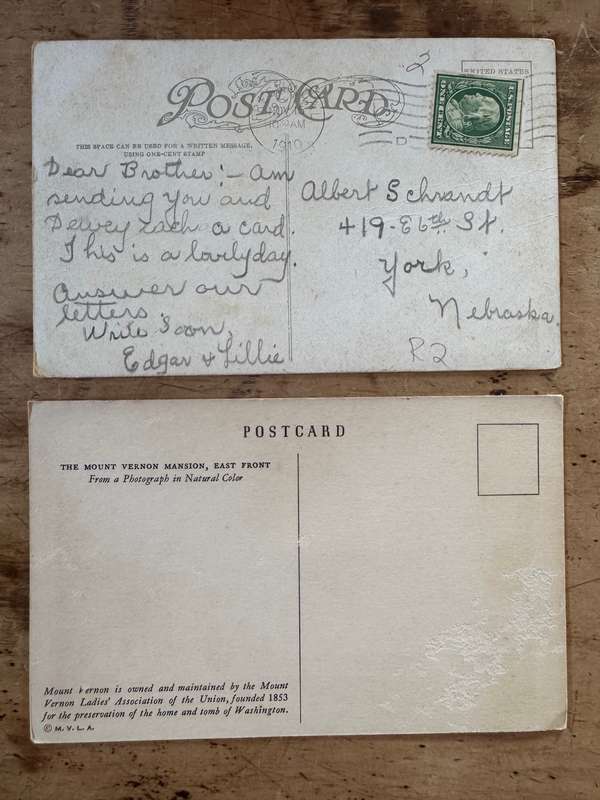 2
UNITED STATES
POST CARD
U.S. POSTAGE
ONE CENT
AM
1910
D
THIS SPACE CAN BE USED FOR A WRITTEN MESSAGE,
USING ONE-CENT STAMP
Dear Brother:- Am
sending you and
Dewey each a card.
This is a lovely day.
Answer our
letters.
Write Soon,
Edgar & Lillie
Albert Schrandt
419-E 6th St.
York,
Nebraska.
R2
POSTCARD
THE MOUNT VERNON MANSION, EAST FRONT
From a Photograph in Natural Color
Mount Vernon is owned and maintained by the Mount
Vernon Ladies' Association of the Union, founded 1853
for the preservation of the home and tomb of Washington.
© M.V.L.A.